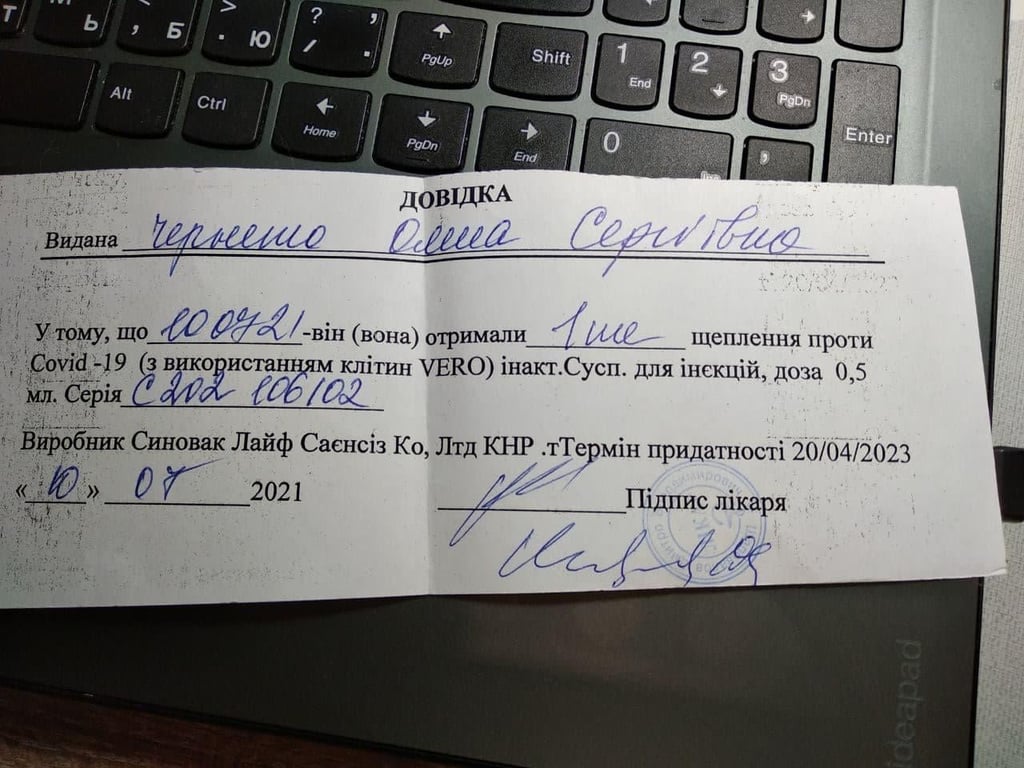 т Ь , Б > . Ю ? / , . PgUp Shift 1 End 2 3 PgDn
Alt Ctrl Home PgDn End 0 , Enter
ДОВІДКА
Видана Сергіївно
У тому, що 100721-він (вона) отримали 1ше щеплення проти
Covid -19 (з використанням клітин VERO) інакт.Сусп. для інєкцій, доза 0,5
мл. Серія С202 106102
Виробник Синовак Лайф Саєнсіз Ко, Лтд КНР .тТермін придатності 20/04/2023
«10» 07 2021 Підпис лікаря
ideapad